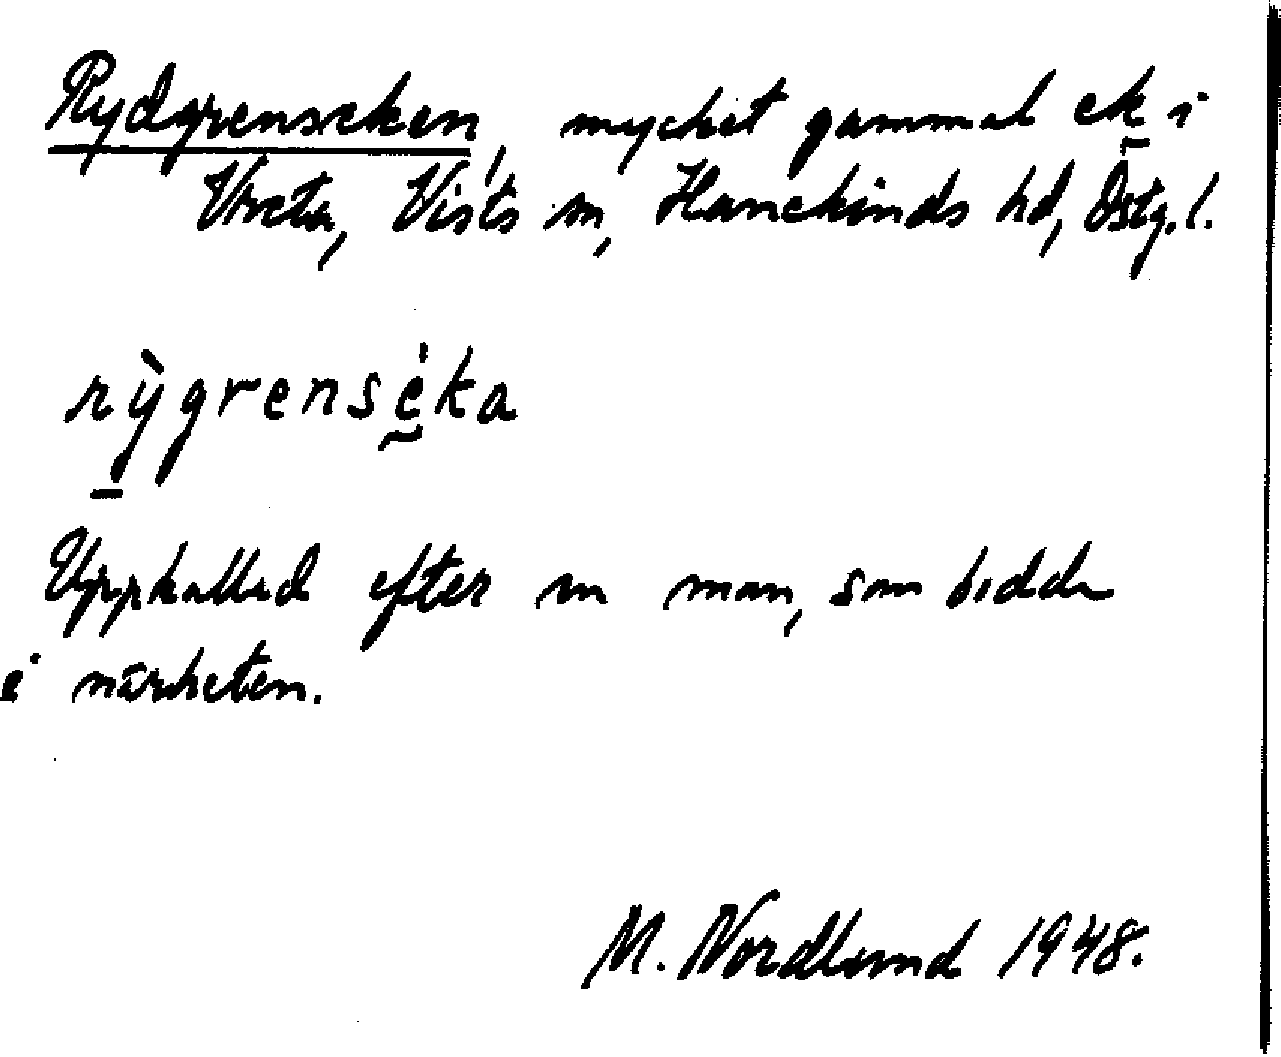 Rydgrenseken, mycket gammal ek i
Vreta, Vists sn, Hanekinds hd, Östg. l.
rỳgrenséka
Uppkallad efter en man, som bodde
i närheten.
M. Nordlund 1948.